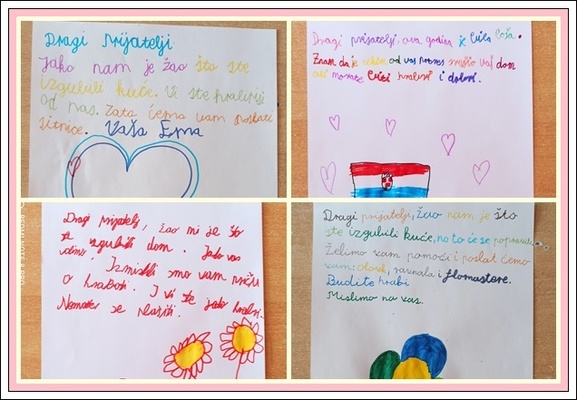 Dragi Prijatelji
Jako nam je žao što ste
izgubili kuće. Vi ste hrabriji
od nas. Zato ćemo vam poslati
sitnice. Vaša Ema
Dragi prijatelji, ova godina je bila loša.
Znam da je od vas potres srušio vaš dom
ali morate biti hrabri i dobri.
Dragi prijatelji, žao mi je što
ste izgubili dom. Jako vas
volimo. Izmislili smo vam priču
o hrabosti. I vi ste jako hrabri.
Nemojte se plašiti.
Dragi prijatelji, žao nam je što
ste izgubili kuće, no to će se popraviti.
Želimo vam pomoći i poslat ćemo
vam: olovke, ravnala i flomastere.
Budite hrabri
Mislimo na vas.